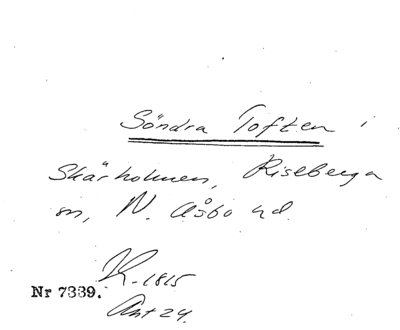 Söndra Toften i
Skärholmen, Riseberga
sn, N. Åsbo hd.
R. 1815
Nr 7339.
Ant 24.